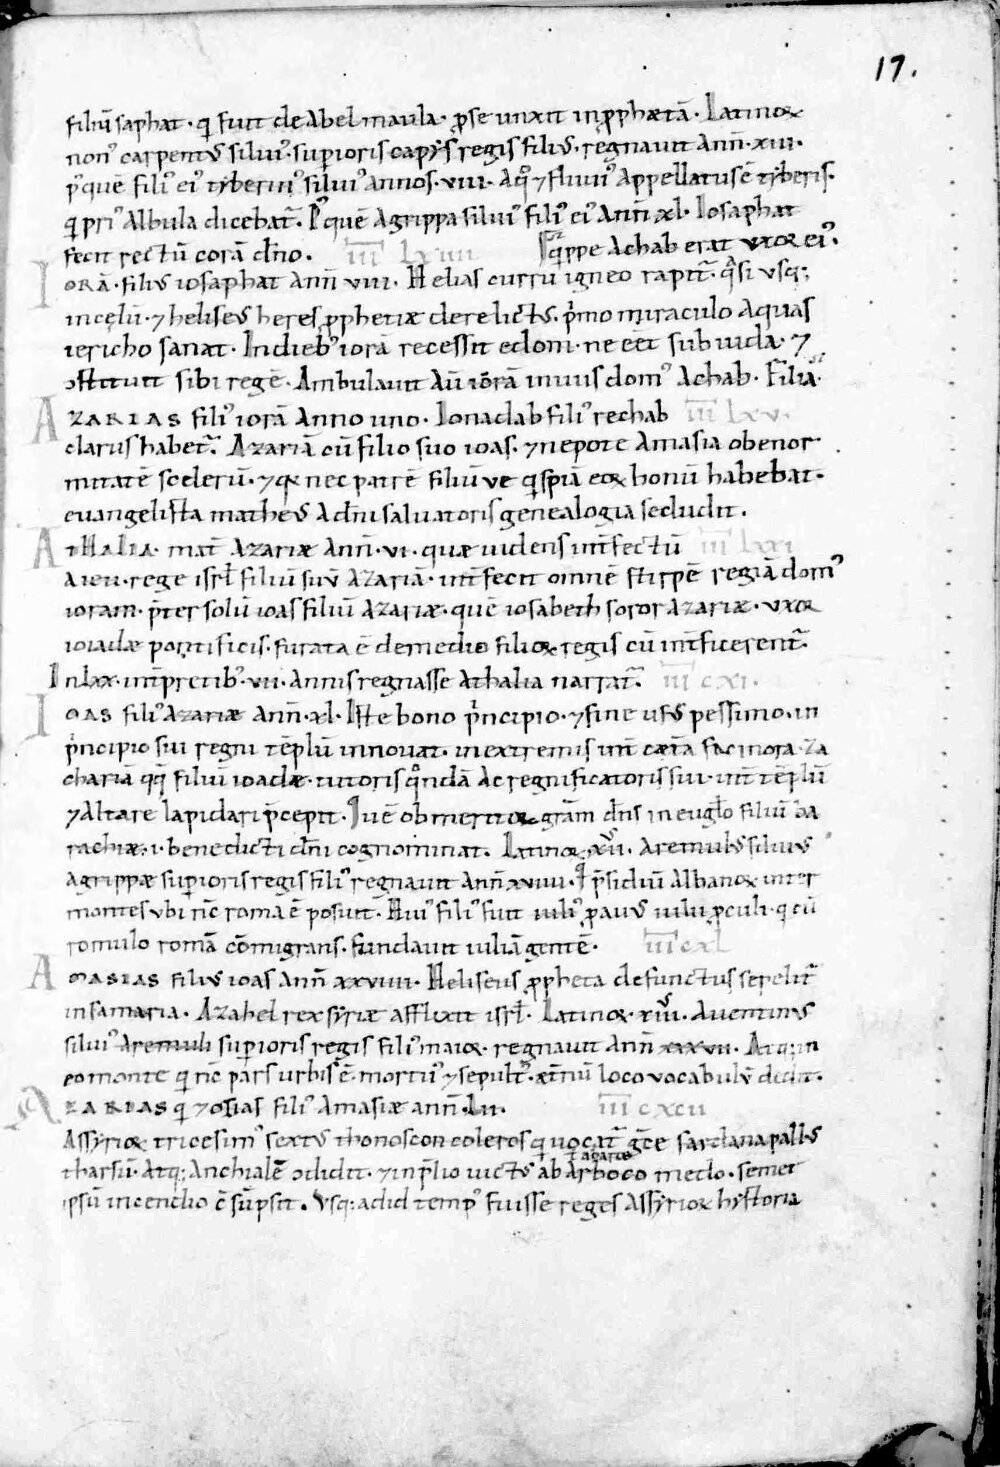 17.
filiũ saphat · qi fuit de Abelmaula · ꝓ se unxit in ꝓphætã · Latinoꝝ
nonꝰ carpentus siluiꝰ · supioris capys regis filius · regnauit Ann̄ · xiii ·
p̾ quẽ filiꝰ eiꝰ tyberinꝰ siluiꝰ annos · viii · A qͦ ⁊ fluuiꝰ Appellatus ẽ tyberis ·
qi priꝰ Albula dicebat̃ · P̾ quẽ Agrippa siluiꝰ filiꝰ eiꝰ Ann̄ xl · Iosaphat
fecit rectũ corã dn̄o · iiii lxiiii
sor qippe Achab erat vxor eiꝰ ·
IORÃ · filius iosaphat Ann̄ viii · Helias curru igneo rapit̃ · q̃si usq;
in cęlũ · ⁊ heliseus heres ꝓphetiæ derelictus · p̾mo miraculo Aquas
iericho sanat · In dieb; iorã recessit edom · ne eēt sub iuda · ⁊
ↄstituit sibi regẽ · Ambulauit Aũ iorã in uiis domꝰ Achab · Filia
AZARIAS filiꝰ iorã Anno uno · Ionadab filiꝰ rechab iiii lxv ·
clarus habet̃ · Azariã cũ filio suo ioas · ⁊ nepote Amasia ob enor
mitatẽ scelerũ · ⁊ qꝛ nec patrẽ filiũ ve qispiã eoꝝ bonũ habebat ·
euangelista matheus A dn̄i saluatoris genealogia secludit ·
AtHALIA · mat̃ Azariæ Ann̄ · vi · quæ uidens int̃fectũ iiii lxxi
A ieu · rege isrł filiũ suũ Azariã · int̃fecit omnẽ stirpẽ regiã domꝰ
ioram · p̃ter solũ ioas filiũ Azariæ · quẽ iosabeth soror Azariæ · vxor
ioiadæ pontificis · furata ẽ de medio filioꝝ regis cũ int̃ficerent̃ ·
In lxx · int̃pretib; · vii · Annis regnasse Athalia narrat̃ · iiii cxi ·
IOAS filiꝰ Azariæ Ann̄ · xl · Iste bono p̾ncipio · ⁊ fine usus pessimo · in
p̾ncipio sui regni tẽplũ innouat · in extremis int̃ cæt̃a facinora · Za
chariã qq̃ filiũ ioadæ · tutoris qͦndã Ac regnificatoris sui · int̃ tẽplũ
⁊ Altare lapidari p̃cepit · Quẽ ob meritoꝝ grãm dn̄s in euglo filiũ ba
rachiæ · i · benedicti dn̄i cognominat · Latinoꝝ · xii · Aremulus siluius
Agrippæ supioris regis filiꝰ regnauit Ann̄ xviiii · Qi p̃sidiũ Albanoꝝ inter
montes ubi nc̄ roma ẽ posuit · Huiꝰ filiꝰ fuit iuliꝰ ꝓauus iulii ꝓculi · qi cũ
romulo romã cõmigrans · fundauit iuliã gentẽ · iiii cxl
AMASIAS filius ioas Ann̄ xxviiii · Heliseus ꝓpheta defunctus sepelit̃
in samaria · Azahel rex syriæ afflixit isrł · Latinoꝝ · xiii · Auentinus
siluiꝰ Aremuli supioris regis filiꝰ maior · regnauit Ann̄ xxxvii · Atq; in
eo monte qi nc̄ pars urbis ẽ · mortuꝰ ⁊ sepultꝰ · æt̃nũ loco vocabulũ dedit ·
AZARIAS qi ⁊ osias filiꝰ Amasiæ ann̄ · Lii · iiii cxcii
Assyrioꝝ tricesimꝰ sextus thonosconcoleros qi uocat̃ gc̄e sardanapallus
tharsũ · Atq; Anchialẽ ↄdidit · ⁊ in p̃lio uictus ab Arboco medo · semet
ł agarto
ipsũ incendio ↄsũpsit · Vsq; ad id tempꝰ fuisse reges Assyrioꝝ hystoria